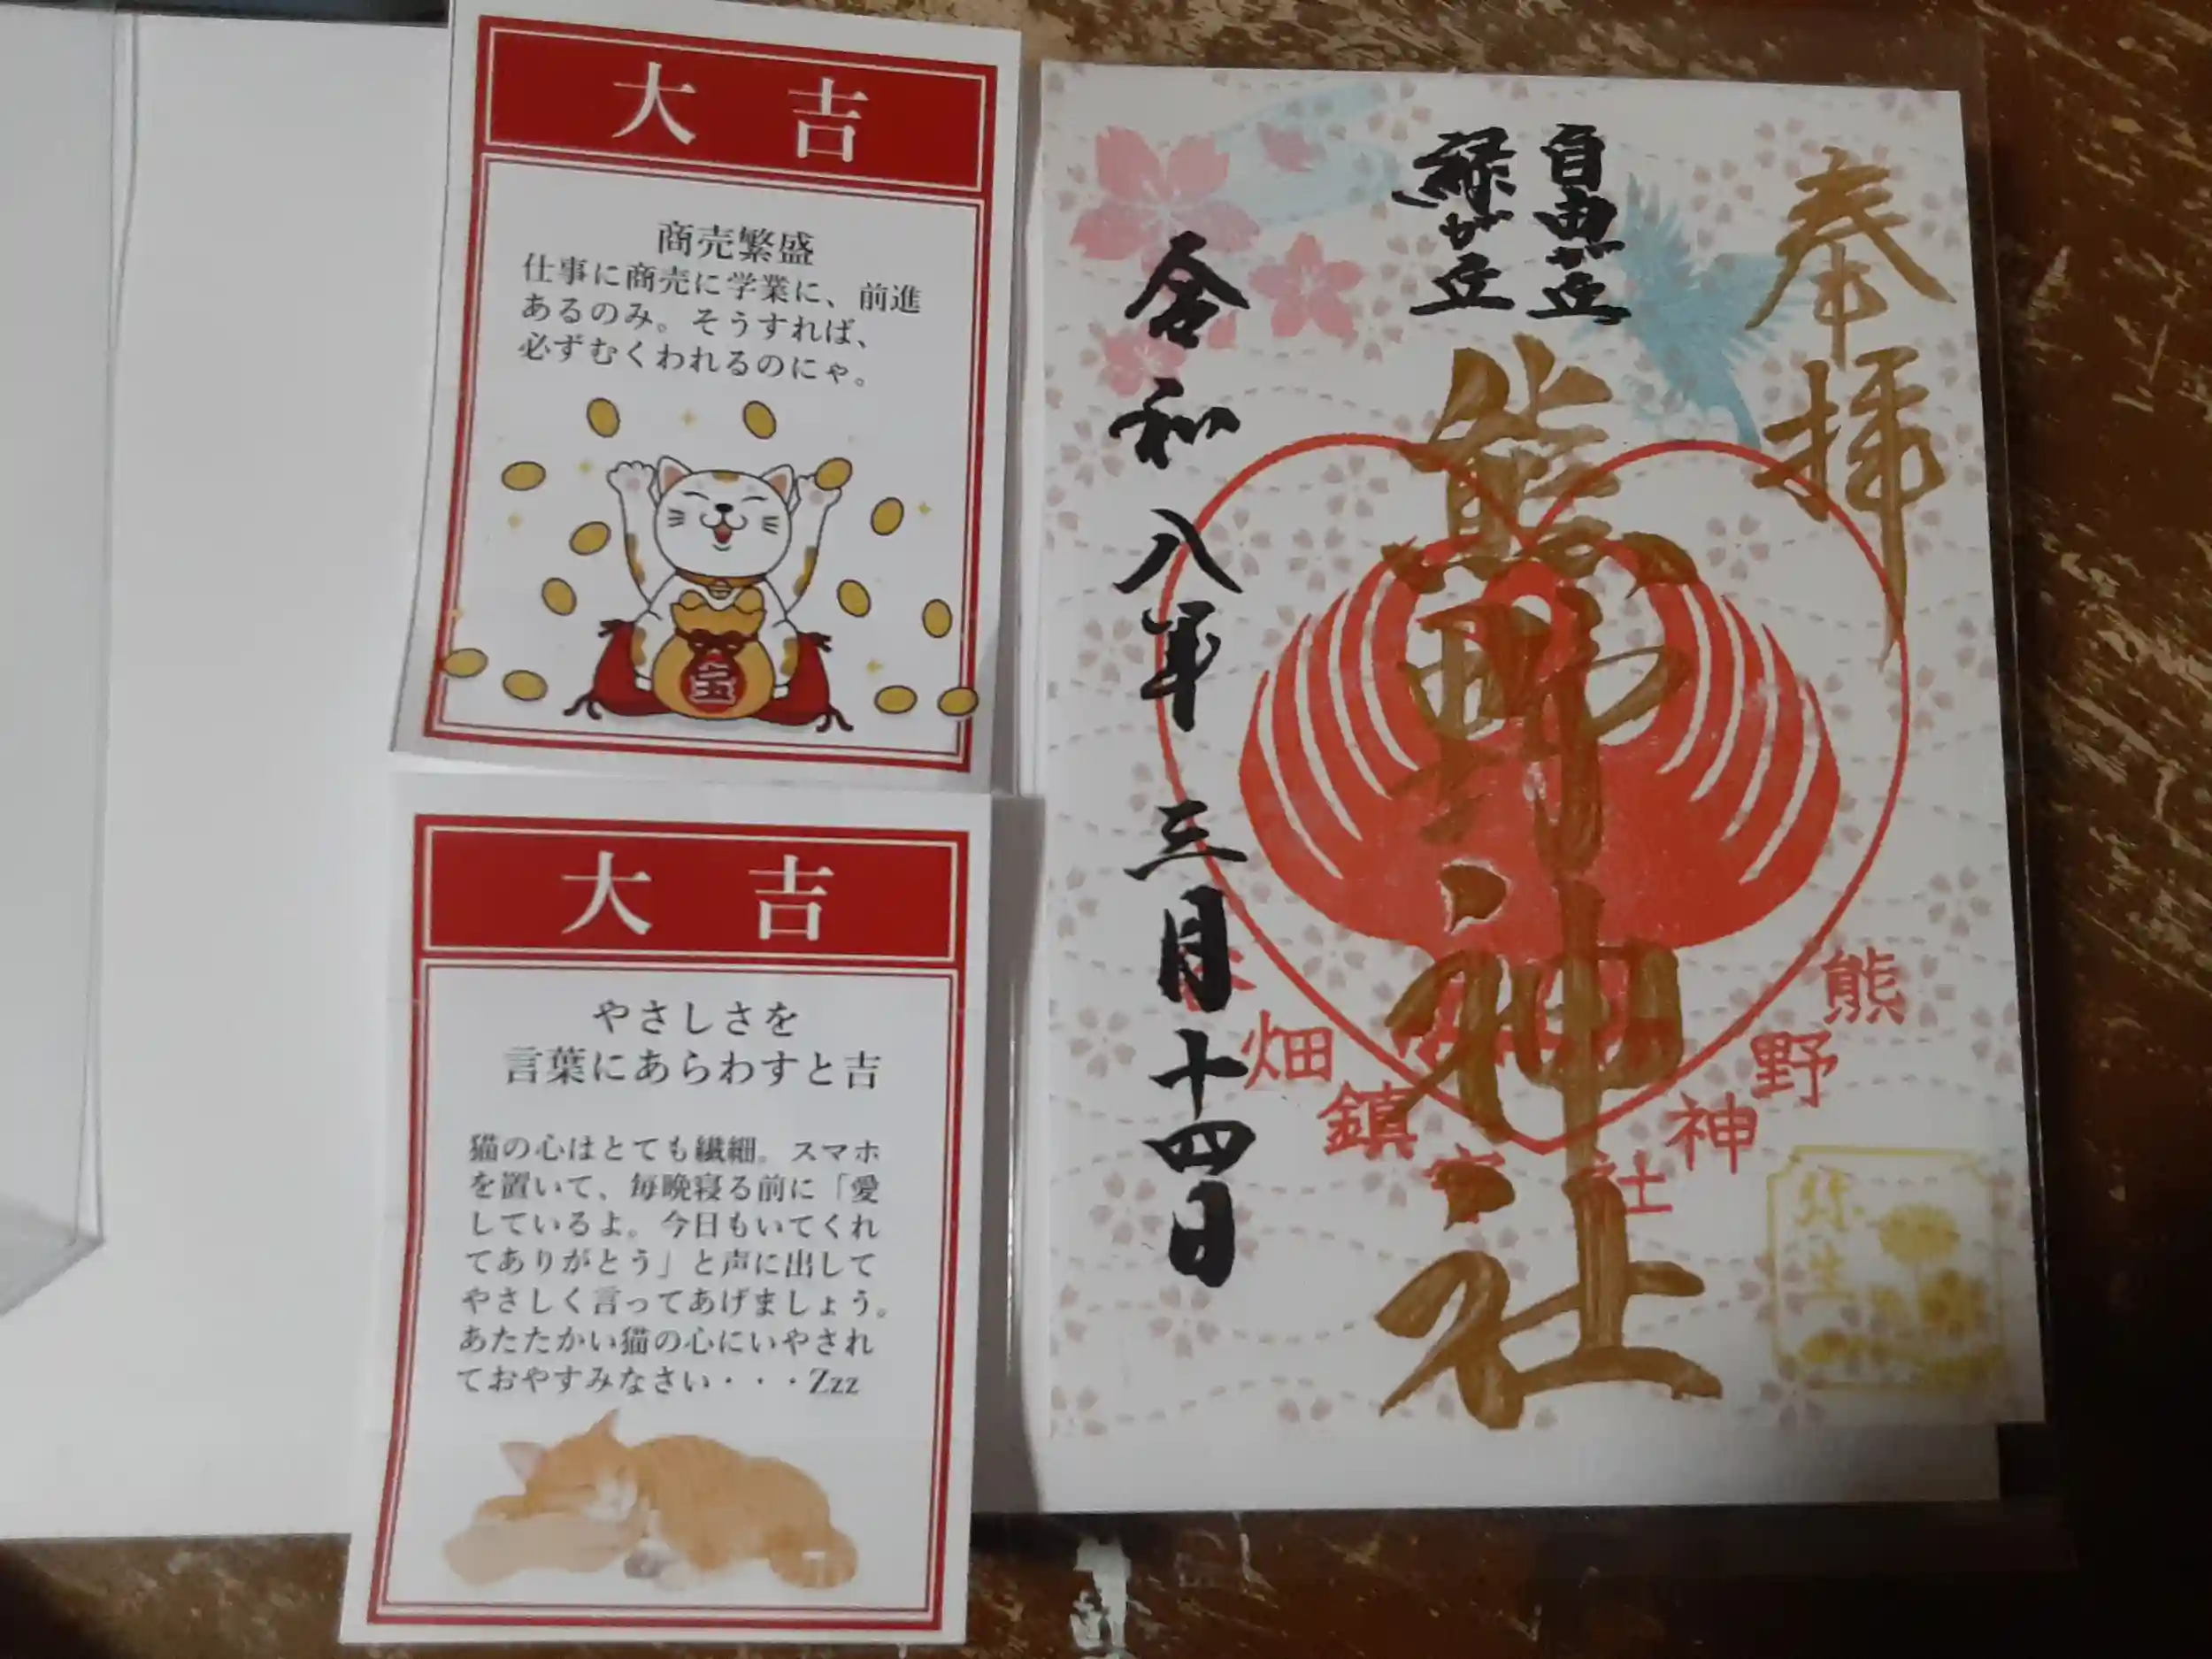 大吉
商売繁盛
仕事に商売に学業に、前進
あるのみ。そうすれば、
必ずむくわれるのにゃ。
宝
大吉
やさしさを
言葉にあらわすと吉
猫の心はとても繊細。スマホ
を置いて、毎晩寝る前に「愛
しているよ。今日もいてくれ
てありがとう」と声に出して
やさしく言ってあげましょう。
あたたかい猫の心にいやされ
ておやすみなさい・・・Zzz
奉拝
自由が丘
緑が丘
熊野神社
令和八年三月十四日
熊野神社
畑鎮守
弥生